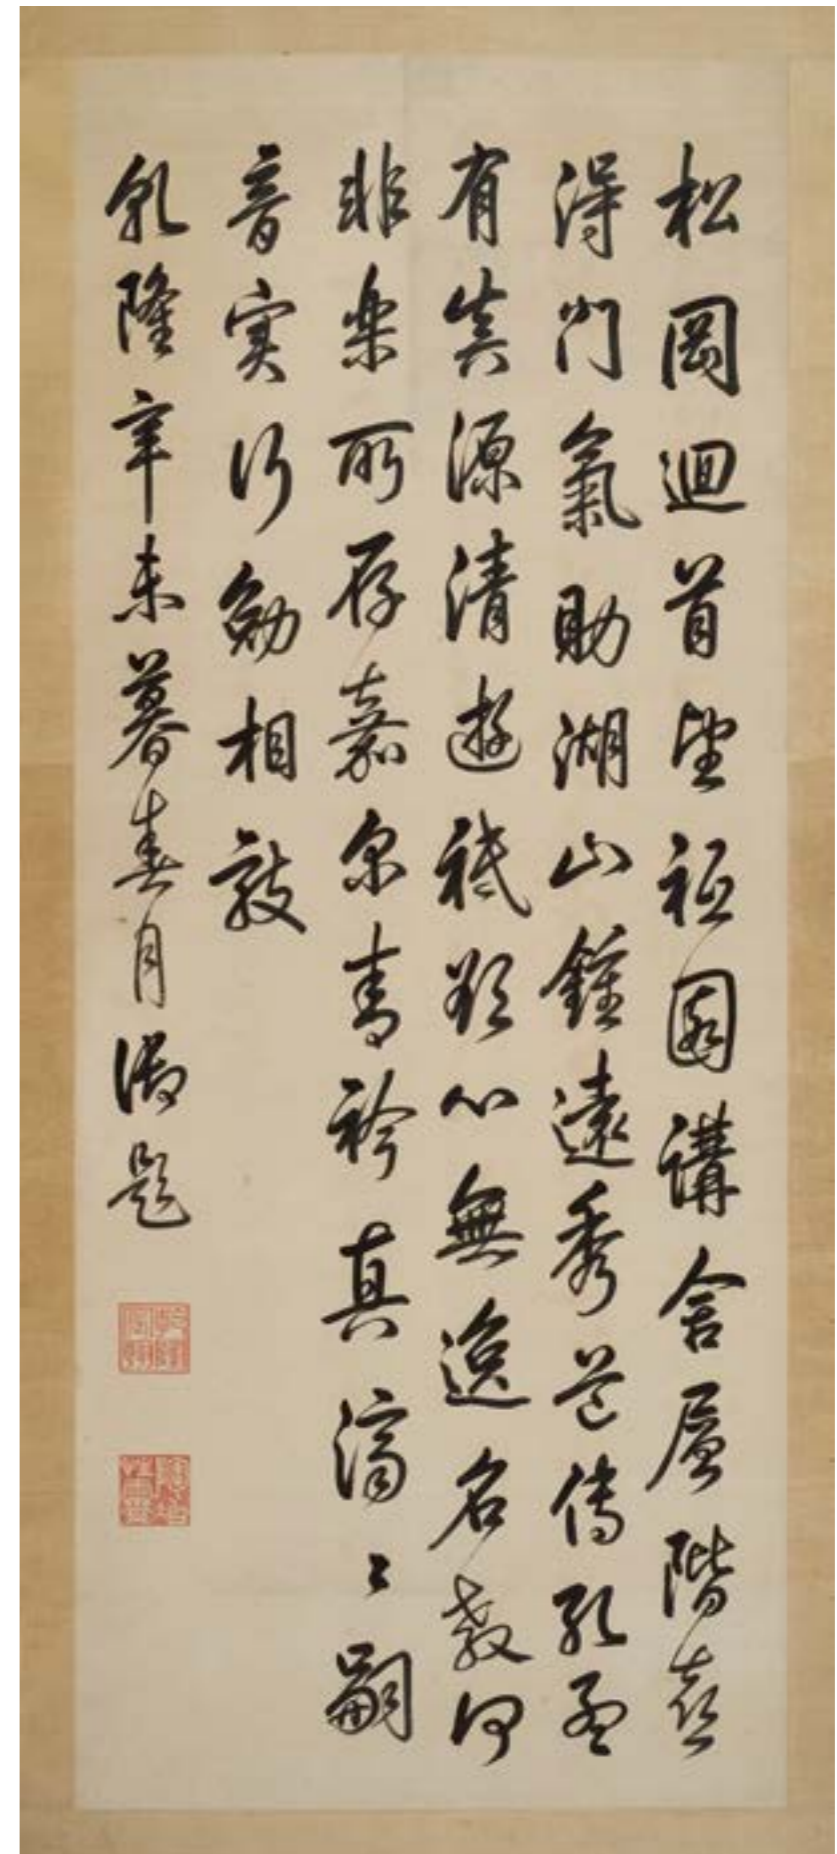 松岡迴首望祗園講舍層階喜
得門氣助湖山鍾遠秀道傳孔孟
有真源清遊祗心無逸名教何
非樂所存嘉爾青衿真濟〻嗣
音實行勉相敦
乾隆辛未暮春月御題
乾隆宸翰